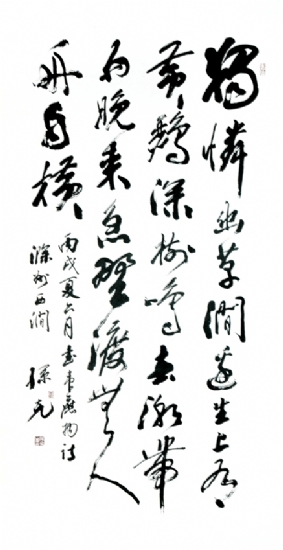 獨憐幽草澗邊生上有
黃鸝深樹鳴春潮帶
雨晚來急野渡無人
舟自橫
丙戌夏六月書韋應物詩
滁州西澗